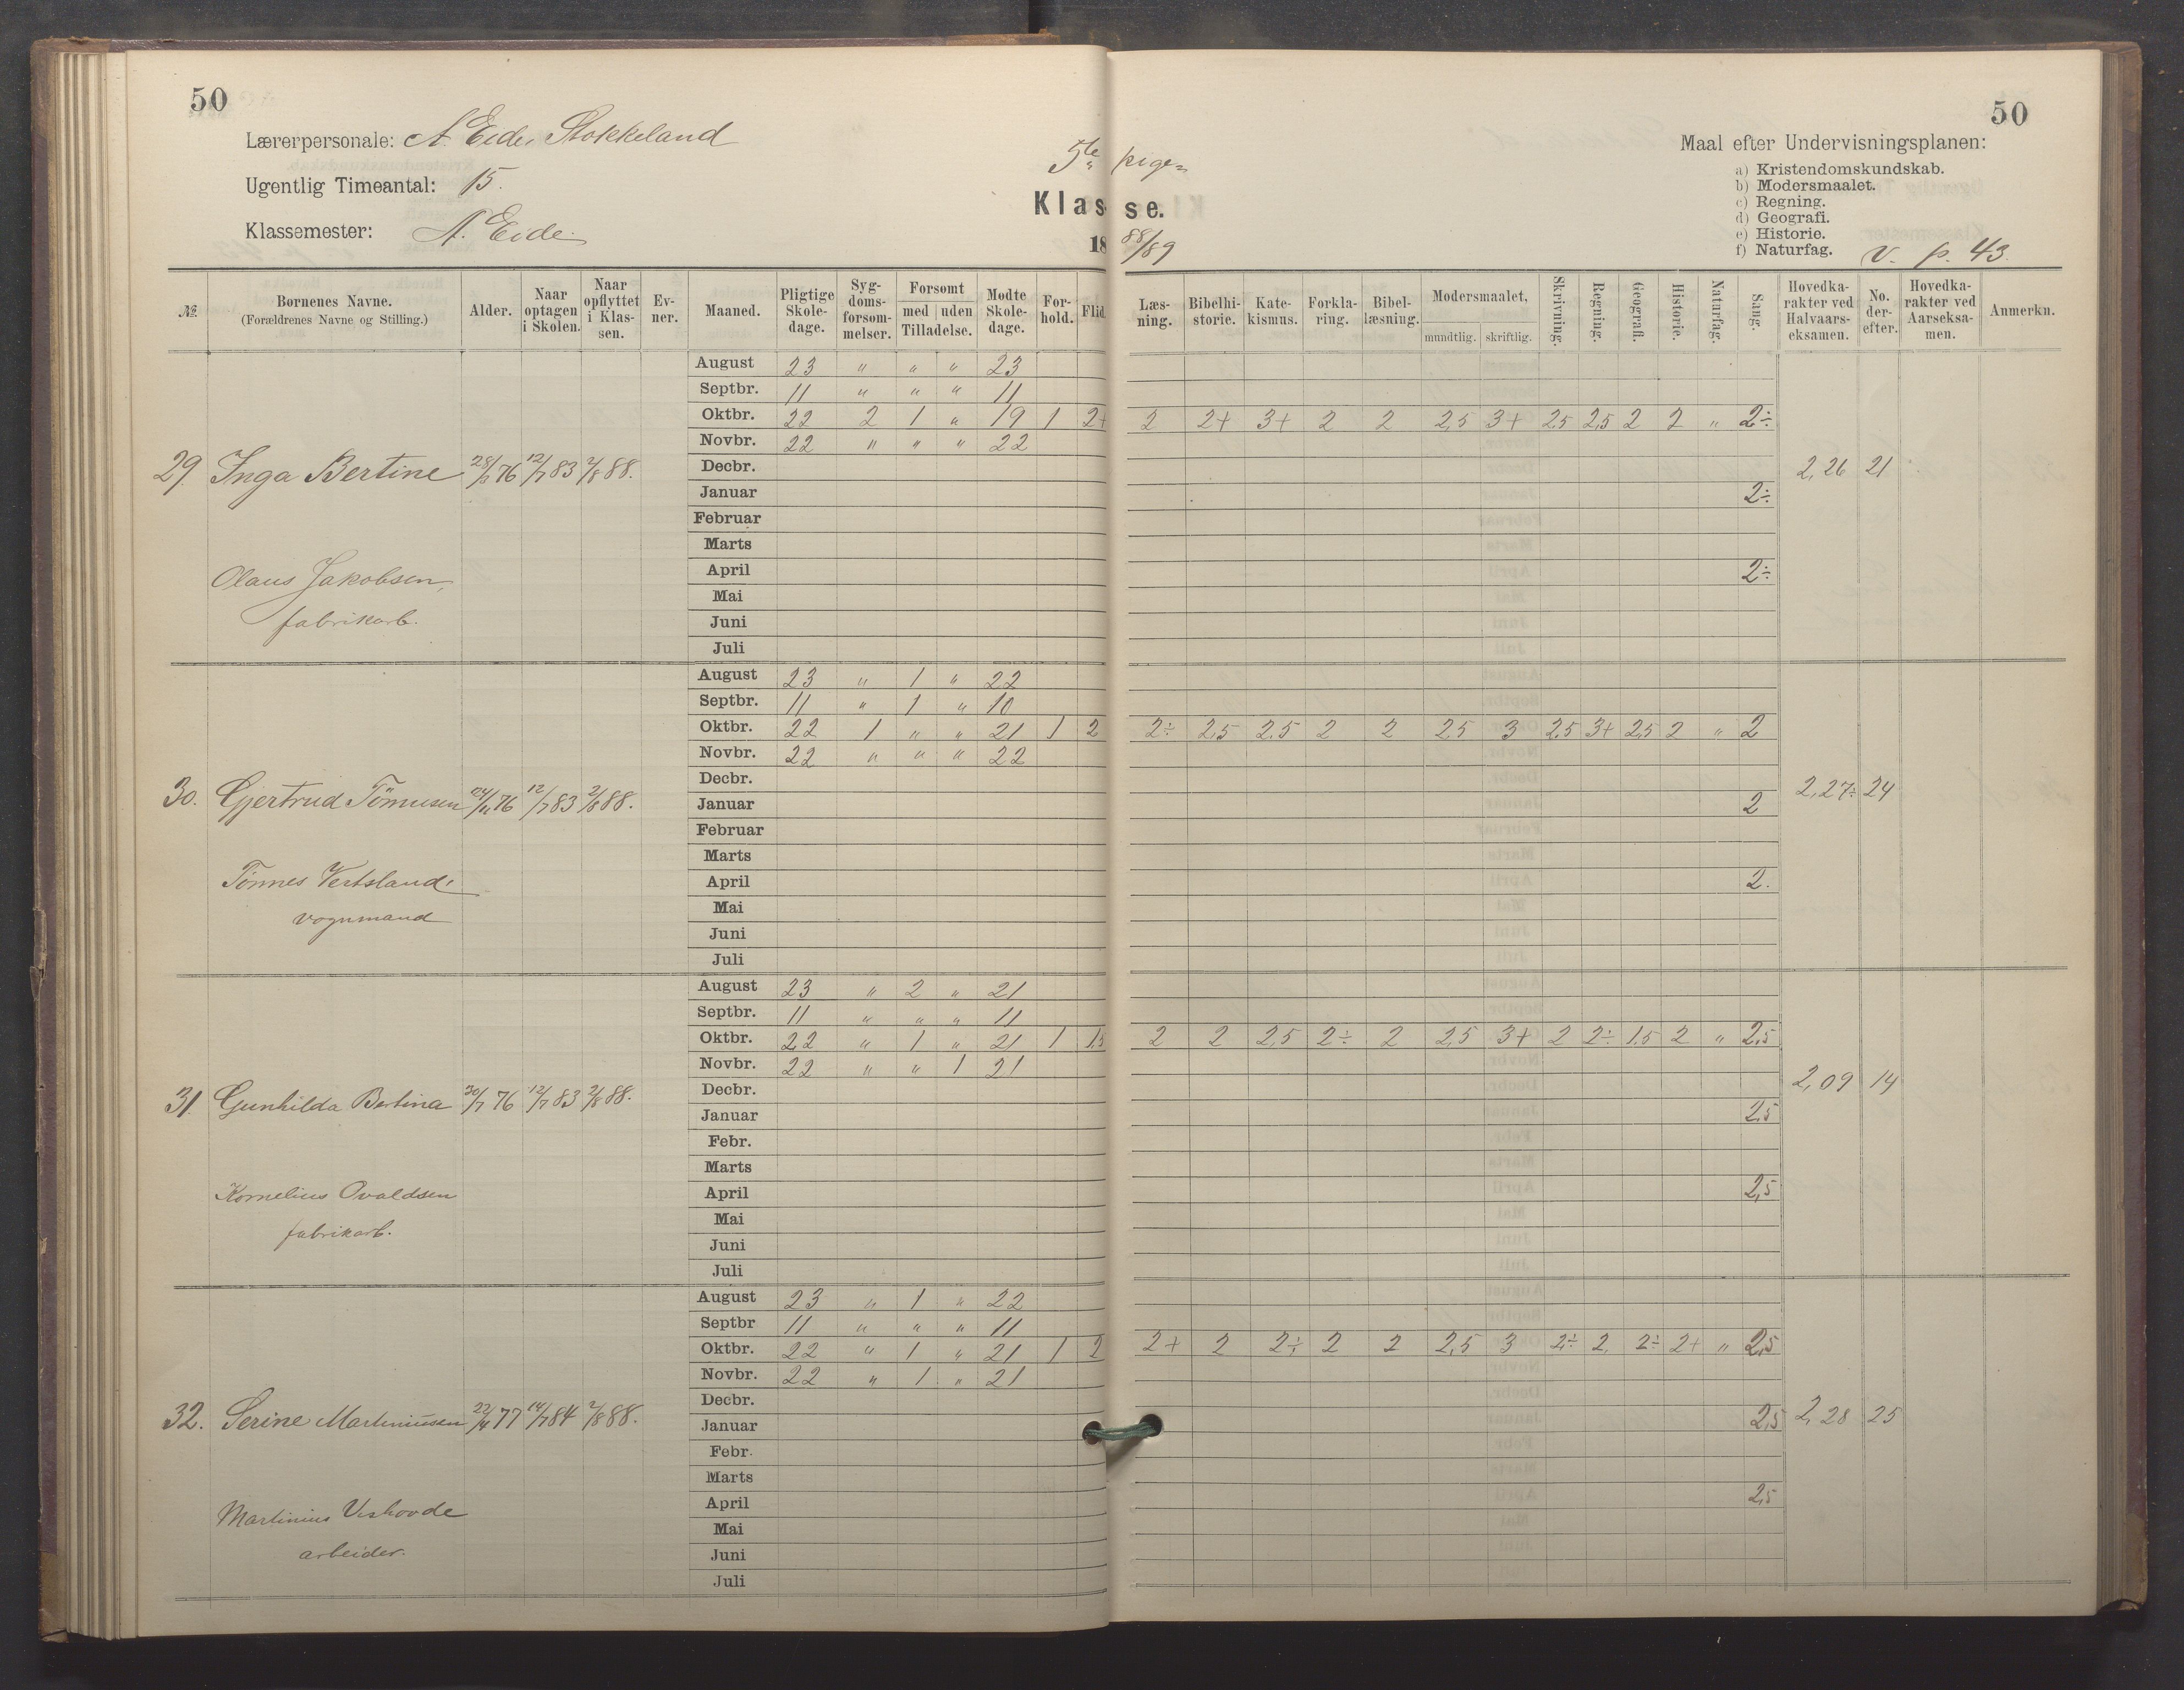 50
50
Lærerpersonale: A. Eide, Stokkeland
Ugentlig Timeantal: 15.
Klassemester: A. Eide.
5te pige
Klasse.
1888/89
Maal efter Undervisningsplanen:
a) Kristendomskundskab.
b) Modersmaalet.
c) Regning.
d) Geografi.
e) Historie.
f) Naturfag. V. p. 43.
№ Børnenes Navne. (Forældrenes Navne og Stilling.) Alder. Naar optagen i Skolen. Naar opflyttet i Klassen. Evner. Maaned. Pligtige Skoledage. Sygdomsforsømmelser. Forsømt med uden Tilladelse. Mødte Skoledage. Forhold. Flid. Læsning. Bibelhistorie. Katekismus. Forklaring. Bibellæsning. Modersmaalet, mundtlig. skriftlig. Skrivning. Regning. Geografi. Historie. Naturfag. Sang. Hovedkarakter ved Halvaarseksamen. No. derefter. Hovedkarakter ved Aarseksamen. Anmerkn.
August 23 " " " 23
Septbr. 11 " " " 11
Oktbr. 22 2 1 " 19 1 2+ 2 2+ 3+ 2 2 2,5 3+ 2,5 2,5 2 2 " 2÷
Novbr. 22 " " " 22
29. Inga Bertine 28/3 76 12/7 83 2/8 88. Decbr. 2,26 21
Januar 2÷
Februar
Marts
Olaus Jakobsen, April 2÷
Mai
fabrikarb. Juni
Juli
August 23 " 1 " 22
Septbr. 11 " 1 " 10
Oktbr. 22 1 " " 21 1 2 2÷ 2,5 2,5 2 2 2,5 3 2,5 3+ 2,5 2 " 2
Novbr. 22 " " " 22
Decbr.
30. Gjertrud Tönnesen 24/11 76 12/7 83 2/8 88. Januar 2 2,27÷ 24
Februar
Marts
Tönnes Vertsland, April 2.
vognmand Mai
Juni
Juli
August 23 " 2 " 21
Septbr. 11 " " " 11
Oktbr. 22 " 1 " 21 1 1,5 2 2 2,5 2÷ 2 2,5 3+ 2 2÷ 1,5 2 " 2,5
Novbr. 22 " " 1 21
31. Gunhilda Bertina 30/7 76 12/7 83 2/8 88. Decbr. 2,09 14
Januar 2,5
Febr.
Marts
Kornelius Ovaldsen April 2,5
Mai
fabrikarb. Juni
Juli
August 23 " 1 " 22
Septbr 11 " " " 11
Oktbr. 22 " 1 " 21 1 2 2+ 2 2÷ 2 2 2,5 3 2÷ 2 2÷ 2+ " 2,5
Novbr. 22 " 1 " 21
Decbr.
32. Serine Martiniusen 22/4 77 14/7 84 2/8 88. Januar 2,5 2,28 25
Febr.
Marts
Martinius Vishovde April 2,5
Mai
arbeider. Juni
Juli